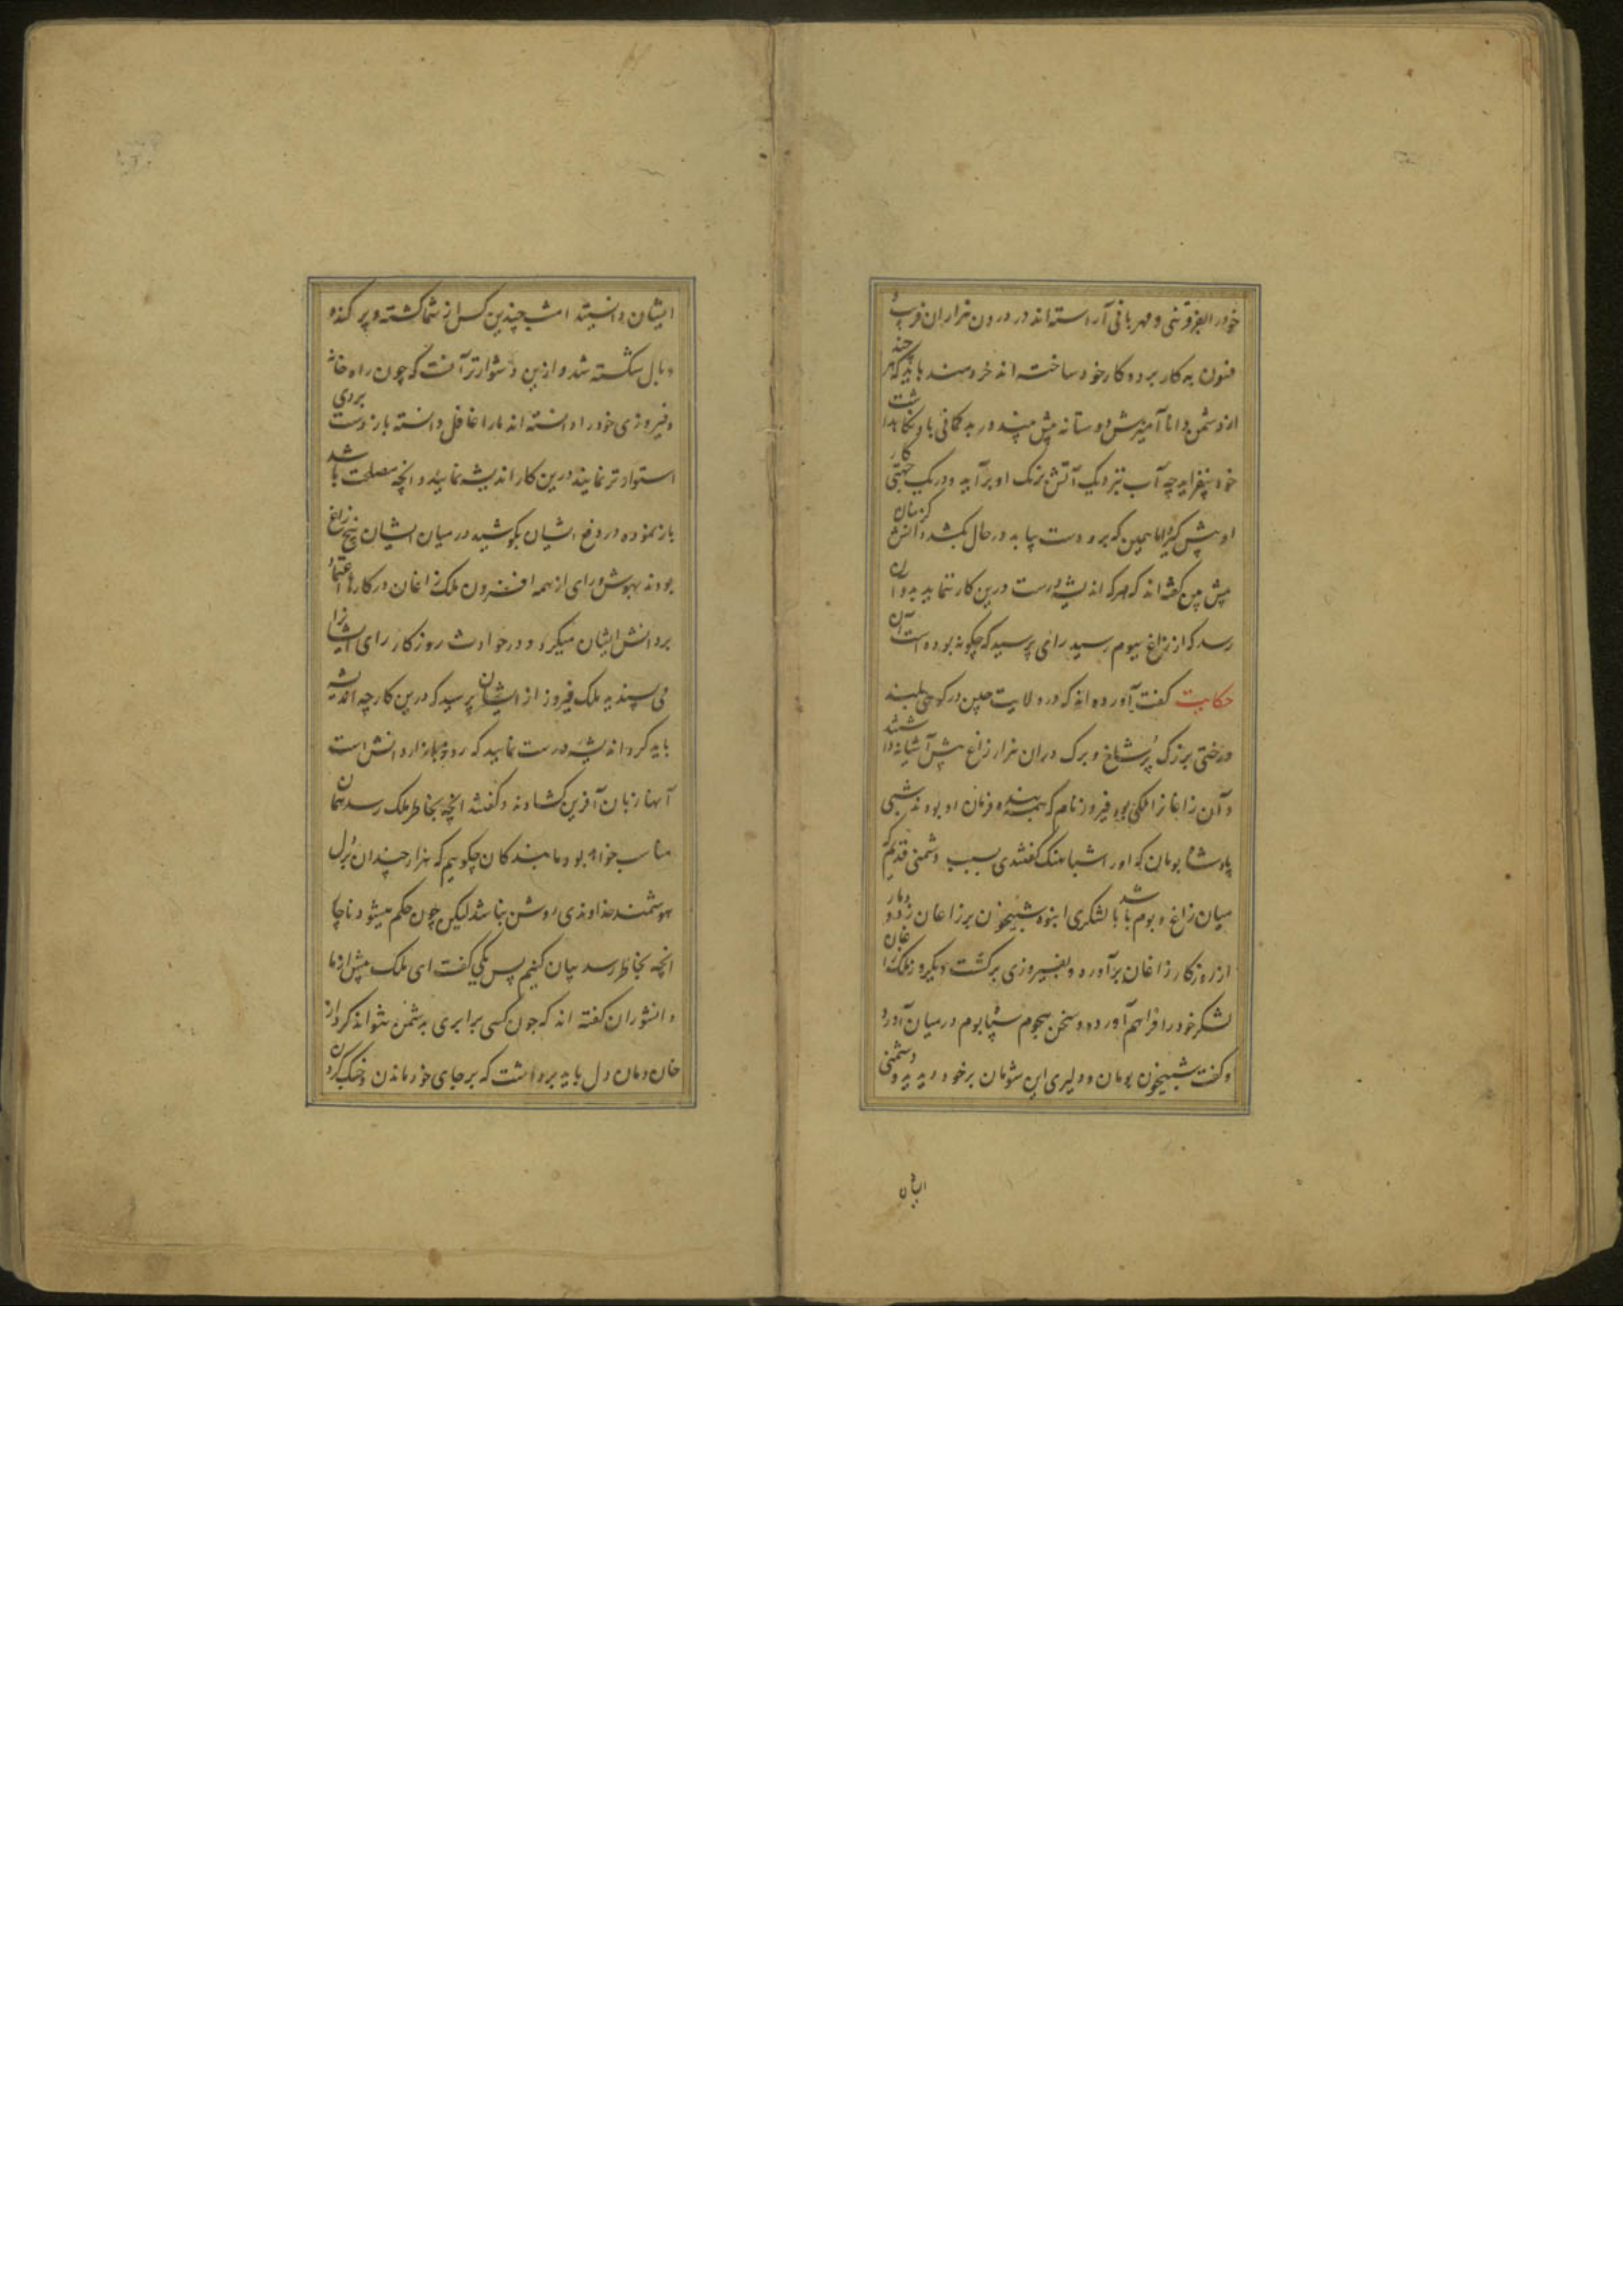 خود را بفروتنی و مهربانی آراسته اند در درون هزاران فریب و
فنون به کار برده کار خود ساخته اند خردمند باید که هر چند
از دشمن دانا آمیزش دوستانه پیش بیند در بدگمانی باد نکاهدا
خود بیفزاید چه آب نزدیک آتش برنگ او برآید و در یک جهتی کار
او پیش گیرد اما همین که برو دست یابد در حال بکشد دانش گزینان
پیش من گفته اند که هرکه اندیشه درست درین کار ننماید بدو آن
رسد که از زاغ ببوم رسید رای پرسید که چگونه بوده است آن
حکایت گفت آورده اند که در ولایت چین در کوهی بلند
درختی بزرگ پر شاخ و برگ دران هزار زاغ بیش آشیانه داشتند
و آن زاغانرا ملکی بود فیروز نام که همه بنده فرمان او بودند شبی
پادشاه بومان که او را شباهنگ گفتندی بسبب دشمنی قدیم که
میان زاغ و بوم باشد با لشکری انبوه شبیخون بر زاغان زد و دمار
از روزگار زاغان برآورد و بفیروزی برگشت دیگر روز ملک زاغان
لشکر خود را فراهم آورده و سخن هجوم سپاه بوم در میان آورد
و گفت شبیخون بومان و دلیری این شومان بر خود دیدید و دشمنی
ایشان
ایشان دانستید امشب چندین کس از شما کشته و پر کنده
و بال شکسته شد و ازین دشوارتر آنست که چون راه خانه
و فیروزی خود را دانسته اند ما را غافل دانسته باز دست بردی
استوارتر نمایند درین کار اندیشه نمایید و آنچه مصلحت باشد
باز نموده در دفع ایشان بکوشید در میان ایشان پنج زاغ
بودند بهوش و رای از همه افزون ملک زاغان در کارها اعتماد
بر دانش ایشان میکرد و در حوادث روزگار رای ایشانرا
می پسندید ملک فیروز از ایشان پرسید که درین کار چه اندیشه
باید کرد اندیشه درست نمایید که روز بازار دانش است
آنها زبان آفرین گشادند و گفتند آنچه بخاطر ملک رسد همان
مناسب خواهد بود ما بندگان چگوییم که هزار چندان بر دل
هوشمند خداوندی روشن نباشد لیکن چون حکم میشود ناچار
آنچه بخاطر رسد بیان کنیم پس یکی گفت ای ملک پیش از ما
دانشوران گفته اند که چون کسی برابری بدشمن نتواند کرد از
خان و مان دل باید برداشت که بر جای خود ماندن و جنگ کردن